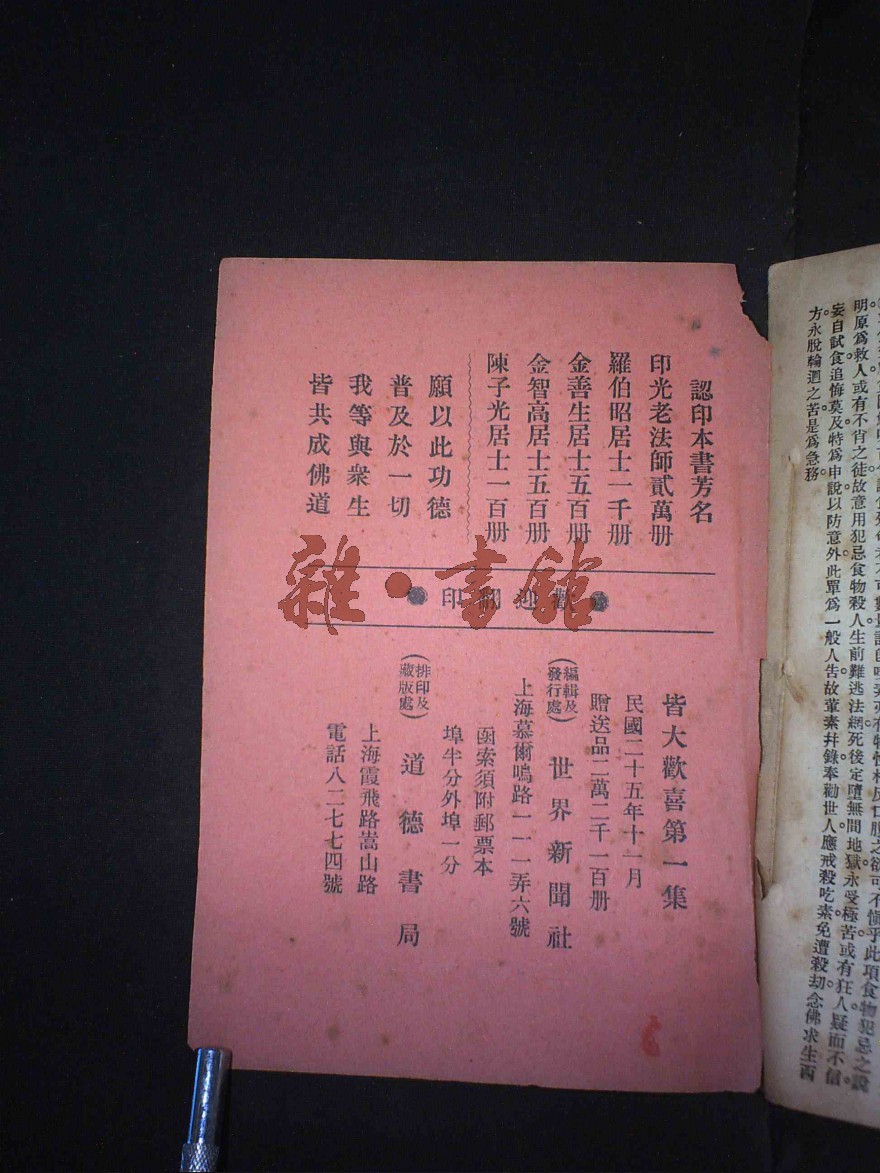 認印本書芳名
印光老法師貳萬册
羅伯昭居士一千册
金善生居士五百册
金智高居士五百册
陳子光居士一百册
願以此功德
普及於一切
我等與衆生
皆共成佛道
歡迎翻印
雜·書館
皆大歡喜第一集
民國二十五年十一月
贈送品二萬二千一百册
(編輯及發行處)世界新聞社
上海慕爾鳴路一一一弄六號
函索須附郵票本
埠半分外埠一分
(排印及藏版處)道德書局
上海霞飛路嵩山路
電話八二七七四號
明原爲救人或有不肖之徒故意用犯忌食物殺人生前難逃法網。死後定墮無間地獄永受極苦。或有狂人疑而不信。
妄自試食追悔莫及。特爲申說以防意外。此單爲一般人告故葷素幷錄奉勸世人應戒殺吃素免遭殺劫。念佛求生西
方永脫輪迴之苦。是爲急務。